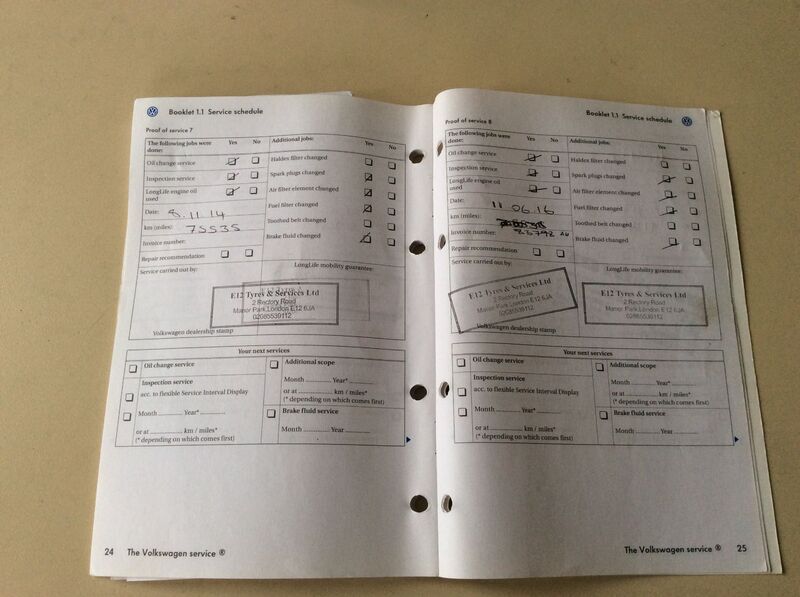 Booklet 1.1 Service schedule
Proof of service 7
The following jobs were done:
Yes
No
Additional jobs:
Yes
No
Oil change service
Inspection service
LongLife engine oil used
Date: 8.11.14
km (miles): 75535
Invoice number:
Repair recommendation
Haldex filter changed
Spark plugs changed
Air filter element changed
Fuel filter changed
Toothed belt changed
Brake fluid changed
Service carried out by:
LongLife mobility guarantee:
E12 Tyres & Services Ltd
2 Rectory Road
Manor Park, London E12 6JA
02085539112
Volkswagen dealership stamp
Your next services
Oil change service
Inspection service
acc. to flexible Service Interval Display
Month ............ Year*............
or at ............ km / miles*
(* depending on which comes first)
Additional scope
Month ............ Year*
or at ............ km / miles*
(* depending on which comes first)
Brake fluid service
Month ............ Year ............
24 The Volkswagen service ®
Booklet 1.1 Service schedule
Proof of service 8
The following jobs were done:
Yes
No
Additional jobs:
Yes
No
Oil change service
Inspection service
LongLife engine oil used
Date: 11.06.16
km (miles):
Invoice number: 83792
Repair recommendation
Haldex filter changed
Spark plugs changed
Air filter element changed
Fuel filter changed
Toothed belt changed
Brake fluid changed
Service carried out by:
LongLife mobility guarantee:
E12 Tyres & Services Ltd
2 Rectory Road
Manor Park, London E12 6JA
02085539112
E12 Tyres & Services Ltd
2 Rectory Road
Manor Park, London E12 6JA
02085539112
Volkswagen dealership stamp
Your next services
Oil change service
Inspection service
acc. to flexible Service Interval Display
Month ............ Year*............
or at ............ km / miles*
(* depending on which comes first)
Additional scope
Month ............ Year*
or at ............ km / miles*
(* depending on which comes first)
Brake fluid service
Month ............ Year ............
The Volkswagen service ® 25